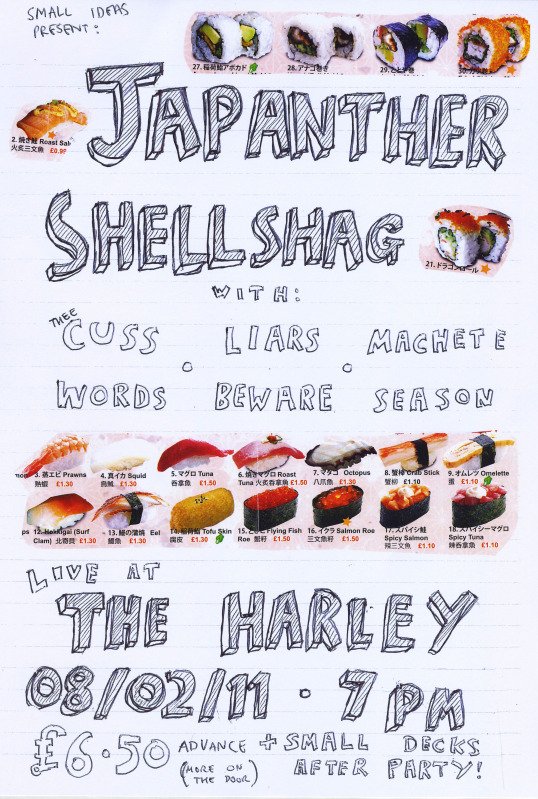 SMALL IDEAS
PRESENT:
27. 稲荷鮨アボカド
28. アナゴ巻き
29.
30.
JAPANTHER
2. 焼き鮭 Roast Sal
火炙三文魚 £0.9
SHELLSHAG
21. ドラゴンロール
WITH:
THEE CUSS WORDS
LIARS BEWARE
MACHETE SEASON
3. 蒸エビ Prawns
熱蝦 £1.30
4. 真イカ Squid
烏魷 £1.30
5. マグロ Tuna
吞拿魚 £1.50
6. 焼きマグロ Roast
Tuna 火炙吞拿魚 £1.50
7. マダコ Octopus
八爪魚 £1.30
8. 蟹棒 Crab Stick
蟹柳 £1.10
9. オムレツ Omelette
蛋 £1.10
12. Hokkigai (Surf
Clam) 北寄貝 £1.30
13. 鰻の蒲焼 Eel
鰻魚 £1.30
14. 稲荷鮨 Tofu Skin
腐皮 £1.30
15. とびこ Flying Fish
Roe 蟹籽 £1.50
16. イクラ Salmon Roe
三文魚籽 £1.50
17. スパイシ鮭
Spicy Salmon
辣三文魚 £1.10
18. スパイシーマグロ
Spicy Tuna
辣吞拿魚 £1.10
LIVE AT
THE HARLEY
08/02/11 · 7 PM
£6.50 ADVANCE
(MORE ON
THE DOOR)
+ SMALL DECKS
AFTER PARTY!